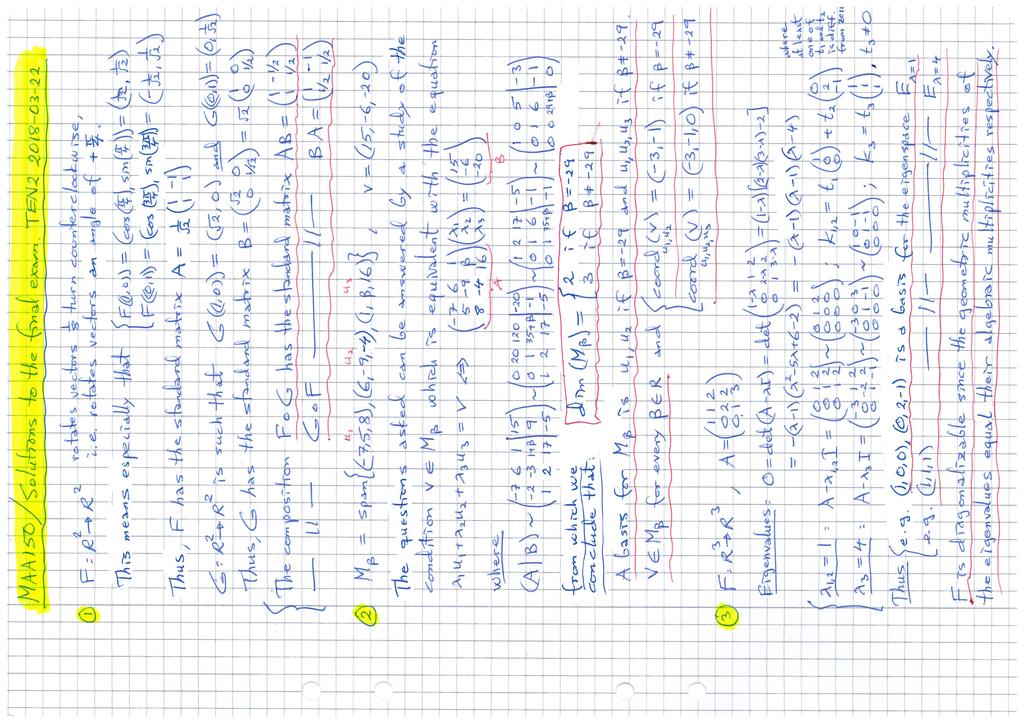 MAA150 / Solutions to the final exam TEN2 2018-03-22
① F: R² → R² rotates vectors ½ turn counterclockwise,
i.e. rotates vectors an angle of + π/4.
This means especially that { F(1,0) = (cos(π/4), sin(π/4)) = (1/√2, 1/√2)
F(0,1) = (cos(3π/4), sin(3π/4)) = (-1/√2, 1/√2)
Thus, F has the standard matrix A = 1/√2 (1 -1; 1 1)
G: R² → R² is such that G(1,0) = (√2, 0) and G(0,1) = (0, 1/√2)
Thus, G has the standard matrix B = (√2 0; 0 1/√2) = √2 (1 0; 0 1/2)
{ The composition F∘G has the standard matrix AB = (1 -1/2; 1 1/2)
— 11 — G∘F — 11 — BA = (1 -1; 1/2 1/2)
② M_β = span{(-7,5,8), (6,-9,-4), (1,β,16)}, v = (15,-6,-20)
u₁ u₂ u₃
The questions asked can be answered by a study of the
condition v ∈ M_β which is equivalent with the equation
λ₁u₁ + λ₂u₂ + λ₃u₃ = v ⇔ (-7 6 1; 5 -9 β; 8 -4 16)(λ₁; λ₂; λ₃) = (15; -6; -20)
A B
where
(A|B) ~ (-7 6 1 | 15; -2 -3 1+β | 9; 1 2 17 | -5) ~ (0 20 120 | -20; 0 1 35+β | -1; 1 2 17 | -5) ~ (1 2 17 | -5; 0 1 6 | -1; 0 1 35+β | -1) ~ (1 0 5 | -3; 0 1 6 | -1; 0 0 29+β | 0)
from which we
conclude that: dim(M_β) = { 2 if β = -29
3 if β ≠ -29
A basis for M_β is u₁, u₂ if β = -29 and u₁, u₂, u₃ if β ≠ -29.
v ∈ M_β for every β ∈ R and { coord_{u₁,u₂}(v) = (-3,-1) if β = -29
coord_{u₁,u₂,u₃}(v) = (-3,-1,0) if β ≠ -29
③ F: R³ → R³, A = (1 1 2; 0 2 2; 0 1 3)
Eigenvalues: 0 = det(A-λI) = det(1-λ 1 2; 0 2-λ 2; 0 1 3-λ) = (1-λ)[(2-λ)(3-λ)-2]
= -(λ-1)(λ²-5λ+6-2) = -(λ-1)(λ-1)(λ-4)
{ λ₁,₂ = 1: A-λ₁,₂I = (0 1 2; 0 1 2; 0 1 2) ~ (0 1 2; 0 0 0; 0 0 0); k₁,₂ = t₁(1; 0; 0) + t₂(0; 2; -1) where at least one of t₁ and t₂ is diff. from zero
λ₃ = 4: A-λ₃I = (-3 1 2; 0 -2 2; 0 1 -1) ~ (-3 0 3; 0 1 -1; 0 0 0) ~ (1 0 -1; 0 1 -1; 0 0 0); k₃ = t₃(1; 1; 1), t₃ ≠ 0
Thus { e.g. (1,0,0), (0,2,-1) is a basis for the eigenspace E_{λ=1}
e.g. (1,1,1) — 11 — — 11 — E_{λ=4}
F is diagonalizable since the geometric multiplicities of
the eigenvalues equal their algebraic multiplicities respectively.